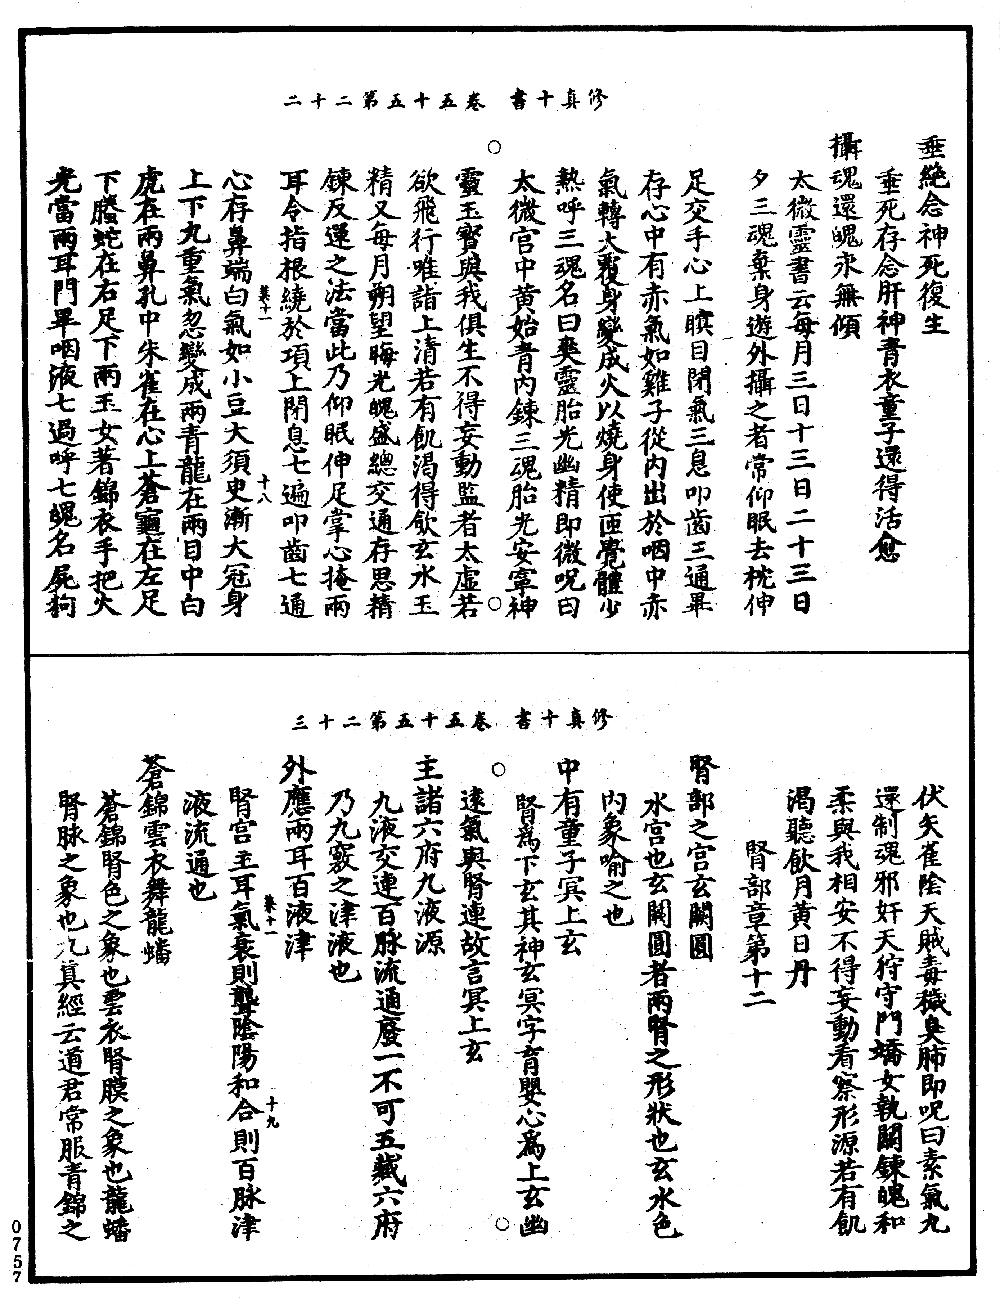 修真十書　卷五十五第二十二
垂絶念神死復生
垂死存念肝神青衣童子還得活愈
攝魂還魄永無傾
太微靈書云每月三日十三日二十三日
夕三魂棄身遊外攝之者常仰眠去枕伸
足交手心上瞑目閉氣三息叩齒三通畢
存心中有赤氣如雞子從內出於咽中赤
氣轉大覆身變成火以燒身使匝覺體少
熱呼三魂名曰爽靈胎光幽精即微呪曰
太微宮中黃始青內鍊三魂胎光安寧神
靈玉寶與我俱生不得妄動監者太虛若
欲飛行唯詣上清若有飢渴得飲玄水玉
精又每月朔望晦光魄盛總交通存思精
鍊反還之法當此乃仰眠伸足掌心掩兩
耳令指根繞於項上閉息七遍叩齒七通
卷十一　十八
心存鼻端白氣如小豆大須臾漸大冠身
上下九重氣忽變成兩青龍在兩目中白
虎在兩鼻孔中朱雀在心上蒼龜在左足
下螣蛇在右足下兩玉女著錦衣手把火
光當兩耳門畢咽液七過呼七魄名屍狗
修真十書　卷五十五第二十三
伏矢雀陰天賊毒穢臭肺即呪曰素氣九
還制魂邪奸天狩守門嬌女執關鍊魄和
柔與我相安不得妄動看察形源若有飢
渴聽飲月黃日丹
腎部章第十二
腎部之宮玄闕圓
水宮也玄闕圓者兩腎之形狀也玄水色
內象喻之也
中有童子冥上玄
腎爲下玄其神玄冥字育嬰心爲上玄幽
遠氣與腎連故言冥上玄
主諸六府九液源
九液交連百脉流通廢一不可五藏六府
乃九竅之津液也
外應兩耳百液津
卷十一　十九
腎宮主耳氣衰則聾陰陽和合則百脉津
液流通也
蒼錦雲衣舞龍蟠
蒼錦腎色之象也雲衣腎膜之象也龍蟠
腎脉之象也九真經云道君常服青錦之
0757